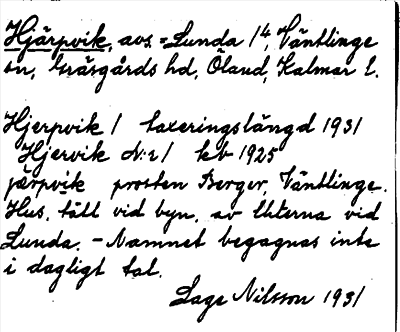 Hjärpvik, avs. = Lunda 1⁴, Väntlinge
sn, Gräsgårds hd, Öland, Kalmar l.
Hjerpvik / taxeringslängd 1931
Hjervik N:r 1/ kb 1925
järpvik prosten Berger, Väntlinge.
Hus, tätt vid byn, av Ekterna vid
Lunda. - Namnet begagnas inte
i dagligt tal.
Lage Nilsson 1931